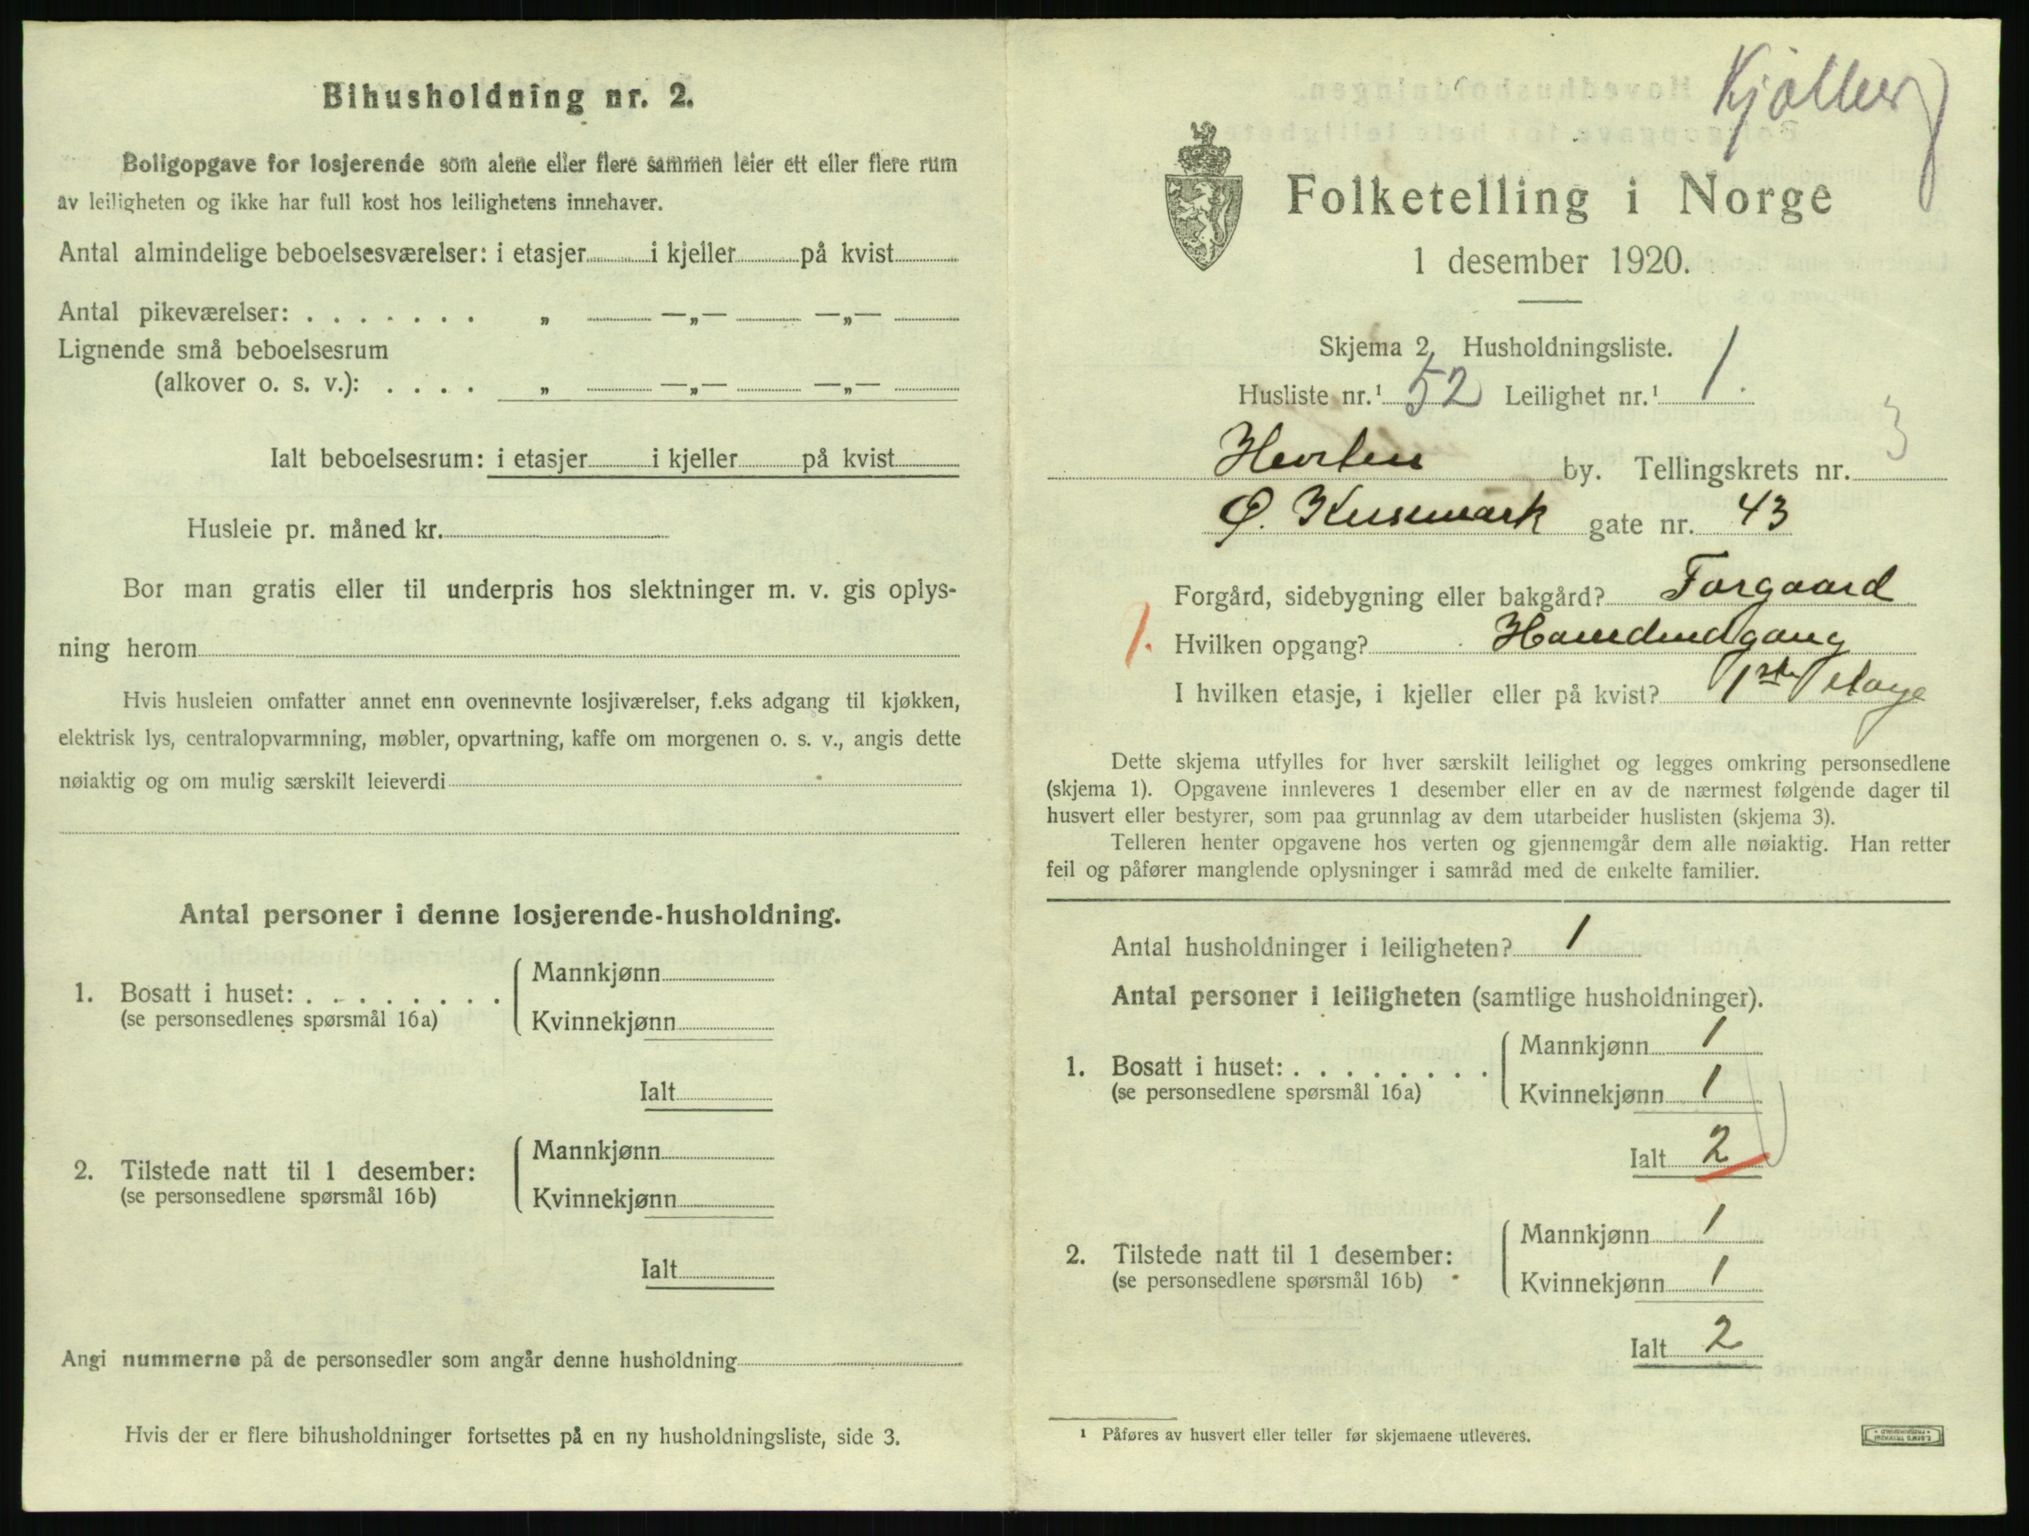 Bihusholdning nr. 2.
Boligopgave for losjerende som alene eller flere sammen leier ett eller flere rum
av leiligheten og ikke har full kost hos leilighetens innehaver.
Antal almindelige beboelsesværelser: i etasjer i kjeller på kvist
Antal pikeværelser: . . . . . . . „ —„— —„—
Lignende små beboelsesrum
(alkover o. s. v.): . . . . „ —„— —„—
Ialt beboelsesrum: i etasjer i kjeller på kvist
Husleie pr. måned kr.
Bor man gratis eller til underpris hos slektninger m. v. gis oplys-
ning herom
Hvis husleien omfatter annet enn ovennevnte losjiværelser, f.eks adgang til kjøkken,
elektrisk lys, centralopvarmning, møbler, opvartning, kaffe om morgenen o. s. v., angis dette
nøiaktig og om mulig særskilt leieverdi
Antal personer i denne losjerende-husholdning.
1. Bosatt i huset: . . . . . . . .
(se personsedlenes spørsmål 16a)
Mannkjønn
Kvinnekjønn
Ialt
2. Tilstede natt til 1 desember:
(se personsedlene spørsmål 16b)
Mannkjønn
Kvinnekjønn
Ialt
Angi nummerne på de personsedler som angår denne husholdning
Hvis der er flere bihusholdninger fortsettes på en ny husholdningsliste, side 3.
Kjølberg
Folketelling i Norge
1 desember 1920.
Skjema 2. Husholdningsliste.
Husliste nr.¹ 52 Leilighet nr.¹ 1.
Horten by. Tellingskrets nr. 3
Ø. Keisemark gate nr. 43
Forgård, sidebygning eller bakgård? Forgaard
1. Hvilken opgang? Hovedindgang
I hvilken etasje, i kjeller eller på kvist? 1ste etage
Dette skjema utfylles for hver særskilt leilighet og legges omkring personsedlene
(skjema 1). Opgavene innleveres 1 desember eller en av de nærmest følgende dager til
husvert eller bestyrer, som paa grunnlag av dem utarbeider huslisten (skjema 3).
Telleren henter opgavene hos verten og gjennemgår dem alle nøiaktig. Han retter
feil og påfører manglende oplysninger i samråd med de enkelte familier.
Antal husholdninger i leiligheten? 1
Antal personer i leiligheten (samtlige husholdninger).
1. Bosatt i huset: . . . . . . . .
(se personsedlene spørsmål 16a)
Mannkjønn 1
Kvinnekjønn 1
Ialt 2
2. Tilstede natt til 1 desember:
(se personsedlene spørsmål 16b)
Mannkjønn 1
Kvinnekjønn 1
Ialt 2
¹ Påføres av husvert eller teller før skjemaene utleveres.